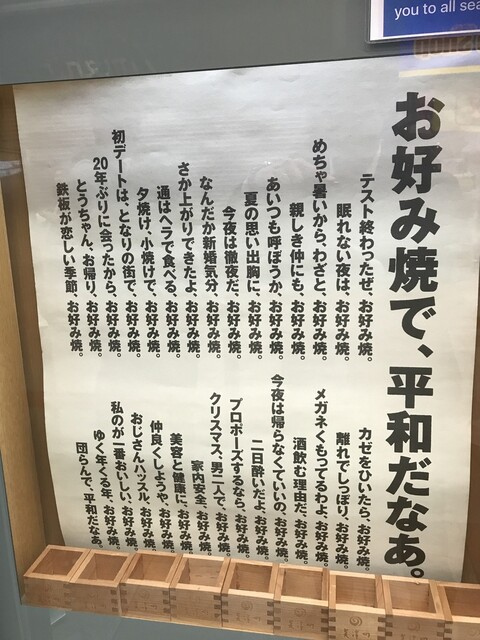 you to all sea
お好み焼で、平和だなあ。
テスト終わったぜ、お好み焼。
眠れない夜は、お好み焼。
めちゃ暑いから、わざと、お好み焼。
親しき仲にも、お好み焼。
あいつも呼ぼうか、お好み焼。
夏の思い出胸に、お好み焼。
今夜は徹夜だ、お好み焼。
なんだか新婚気分、お好み焼。
さか上がりできたよ、お好み焼。
通はヘラで食べる、お好み焼。
夕焼け、小焼けで、お好み焼。
初デートは、となりの街で、お好み焼。
20年ぶりに会ったから、お好み焼。
とうちゃん、お帰り、お好み焼。
鉄板が恋しい季節、お好み焼。
カゼをひいたら、お好み焼。
離れでしっぽり、お好み焼。
メガネくもってるわよ、お好み焼。
酒飲む理由だ、お好み焼。
今夜は帰らなくていいの、お好み焼。
二日酔いだよ、お好み焼。
プロポーズするなら、お好み焼。
クリスマス、男二人で、お好み焼。
家内安全、お好み焼。
美容と健康に、お好み焼。
仲良くしようや、お好み焼。
おじさんハッスル、お好み焼。
私のが一番おいしい、お好み焼。
ゆく年くる年、お好み焼。
団らんで、平和だなあ。